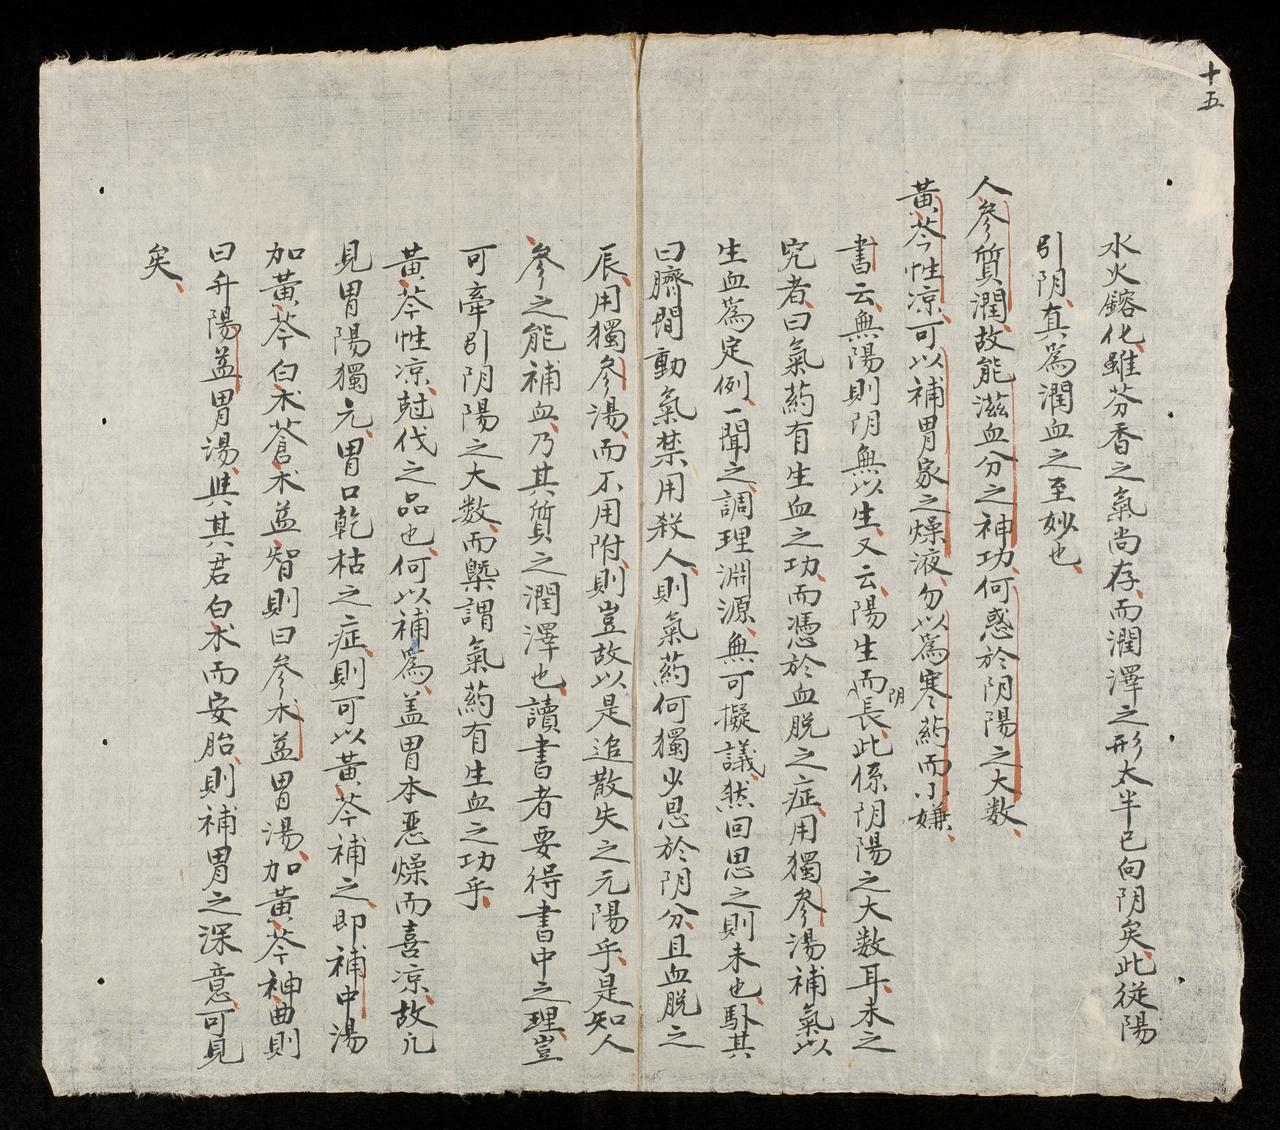 十五
水火鎔化、雖芬香之氣尚存、而潤澤之形太半已向阴矣、此從陽
引阴、真為潤血之至妙也、
人參質潤、故能滋血分之神功、何惑於阴陽之大数、
黃芩性凉、可以補胃家之燥液、勿以爲寒葯而小嫌、
書云、無陽則阴無以生、又云、陽生而阴長、此係阴陽之大数耳、未之
究者、曰氣葯有生血之功、而憑於血脱之症、用獨參湯補氣以
生血爲定例、一聞之、調理淵源、無可擬議、然回思之則未也、臥其
曰臍間動氣、禁用殺人、則氣葯何獨少恩於阴分、且血脱之
辰、用獨參湯、而不用附、則豈故以是追散失之元陽乎、是知人
參之能補血、乃其質之潤澤也、讀書者要得書中之理、豈
可牽引阴陽之大数、而槩謂氣葯有生血之功乎、
黃芩性凉、尅伐之品也、何以補爲、盖胃本惡燥而喜凉、故凢
見胃陽獨亢、胃口乾枯之症、則可以黃芩補之、即補中湯
加黃芩白朮蒼朮益智則曰參朮益胃湯、加黃芩神曲則
曰升陽益胃湯、與其君白朮而安胎、則補胃之深意、可見
矣、